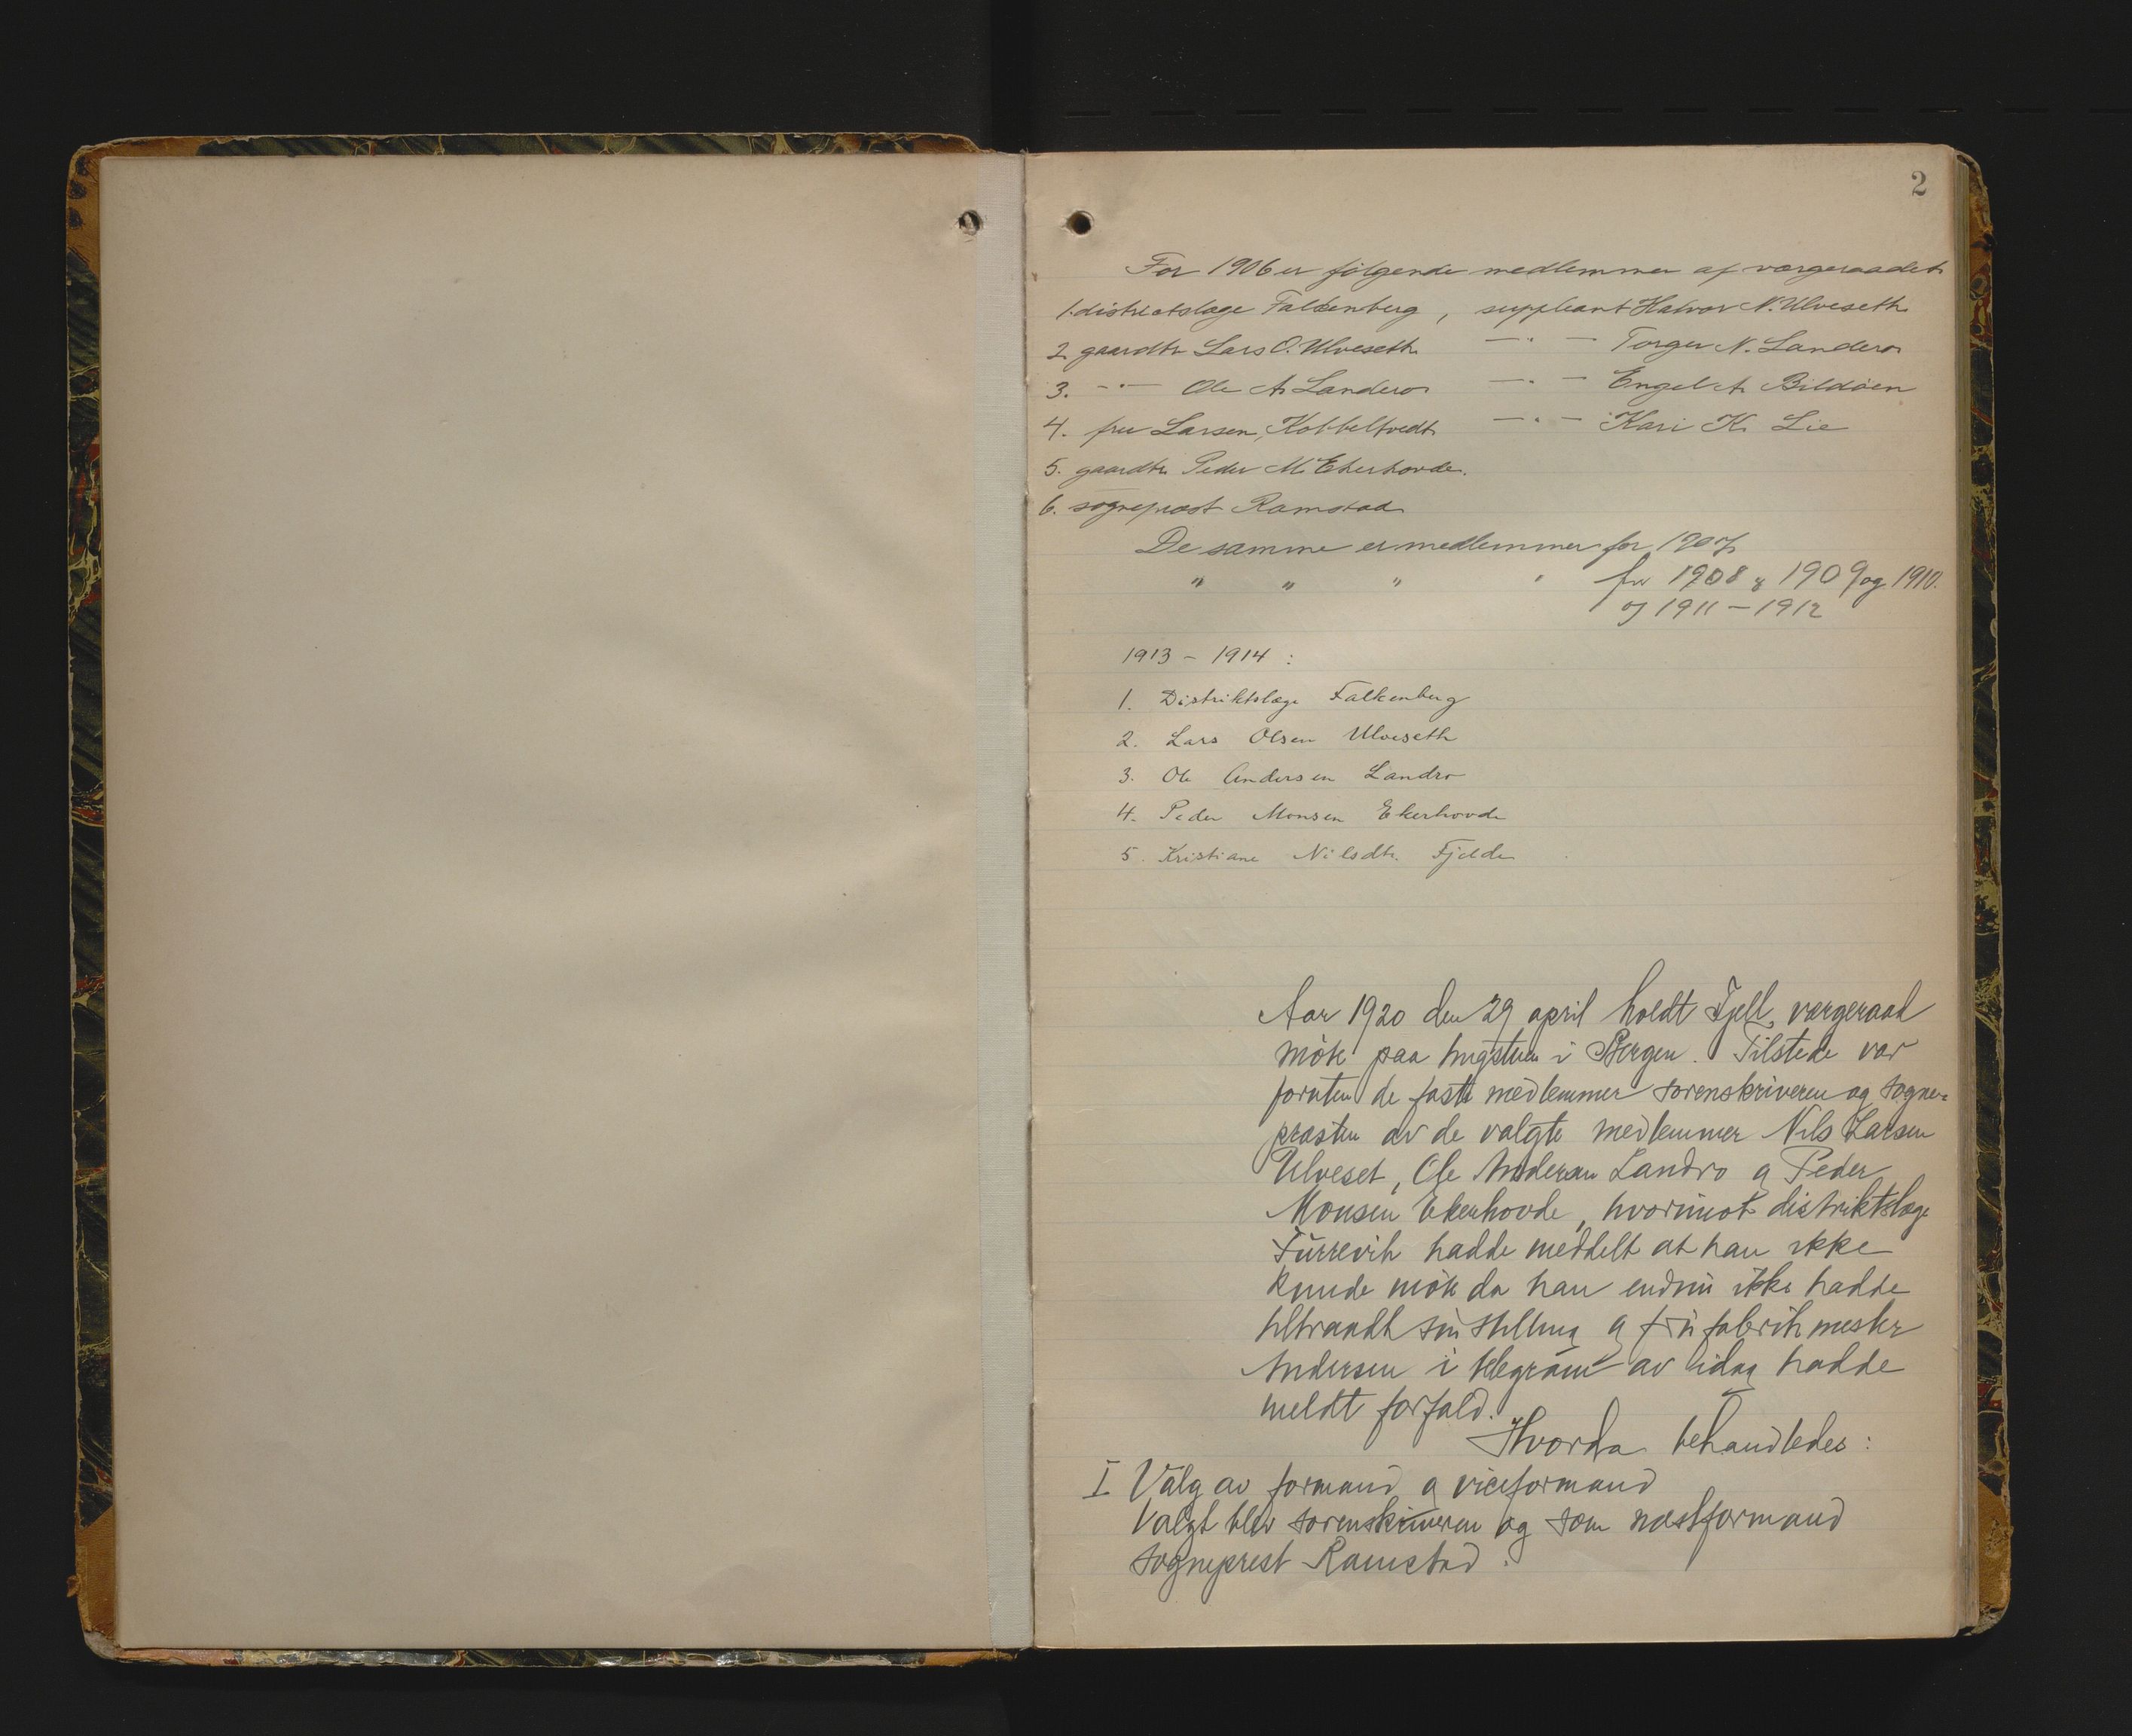 2
For 1906 er følgende medlemmer af værgeraadet
1. districtslæge Falkenberg, suppleant Halvor N. Ulveseth
2. gaardbr Lars O. Ulveseth —"— Torger N. Landero
3. —"— Ole A. Landero —"— Engel A. Bildøen
4. fru Larsen, Kobbeltvedt —"— Kari K. Lie
5. gaardbr Peder M. Ekerhovde.
6. sogneprest Ramstad
De samme er medlemmer for 1907
" " " " for 1908 & 1909 og 1910.
og 1911 – 1912
1913 – 1914 :
1. Distriktslæge Falkenberg
2. Lars Olsen Ulveseth
3. Ole Andersen Landro
4. Peder Monsen Ekerhovde
5. Kristiane Nilsdtr. Fjelde
Aar 1920 den 29 april holdt Fjell værgeraad
møte paa tingstuen i Bergen. Tilstede var
foruten de faste medlemmer sorenskriveren og sogne=
presten av de valgte medlemmer Nils Larsen
Ulveset, Ole Andersen Landro og Peder
Monsen Ekerhovde, hvorimot distriktslæge
Furrevik hadde meddelt at han ikke
kunde møte da han endnu ikke hadde
tiltraadt sin stilling og fru fabrikmester
Andersen i telegram av idag hadde
meldt forfald.
Hvorda behandledes:
I Valg av formand og viceformand
Valgt blev sorenskriveren og som næstformand
sogneprest Ramstad.